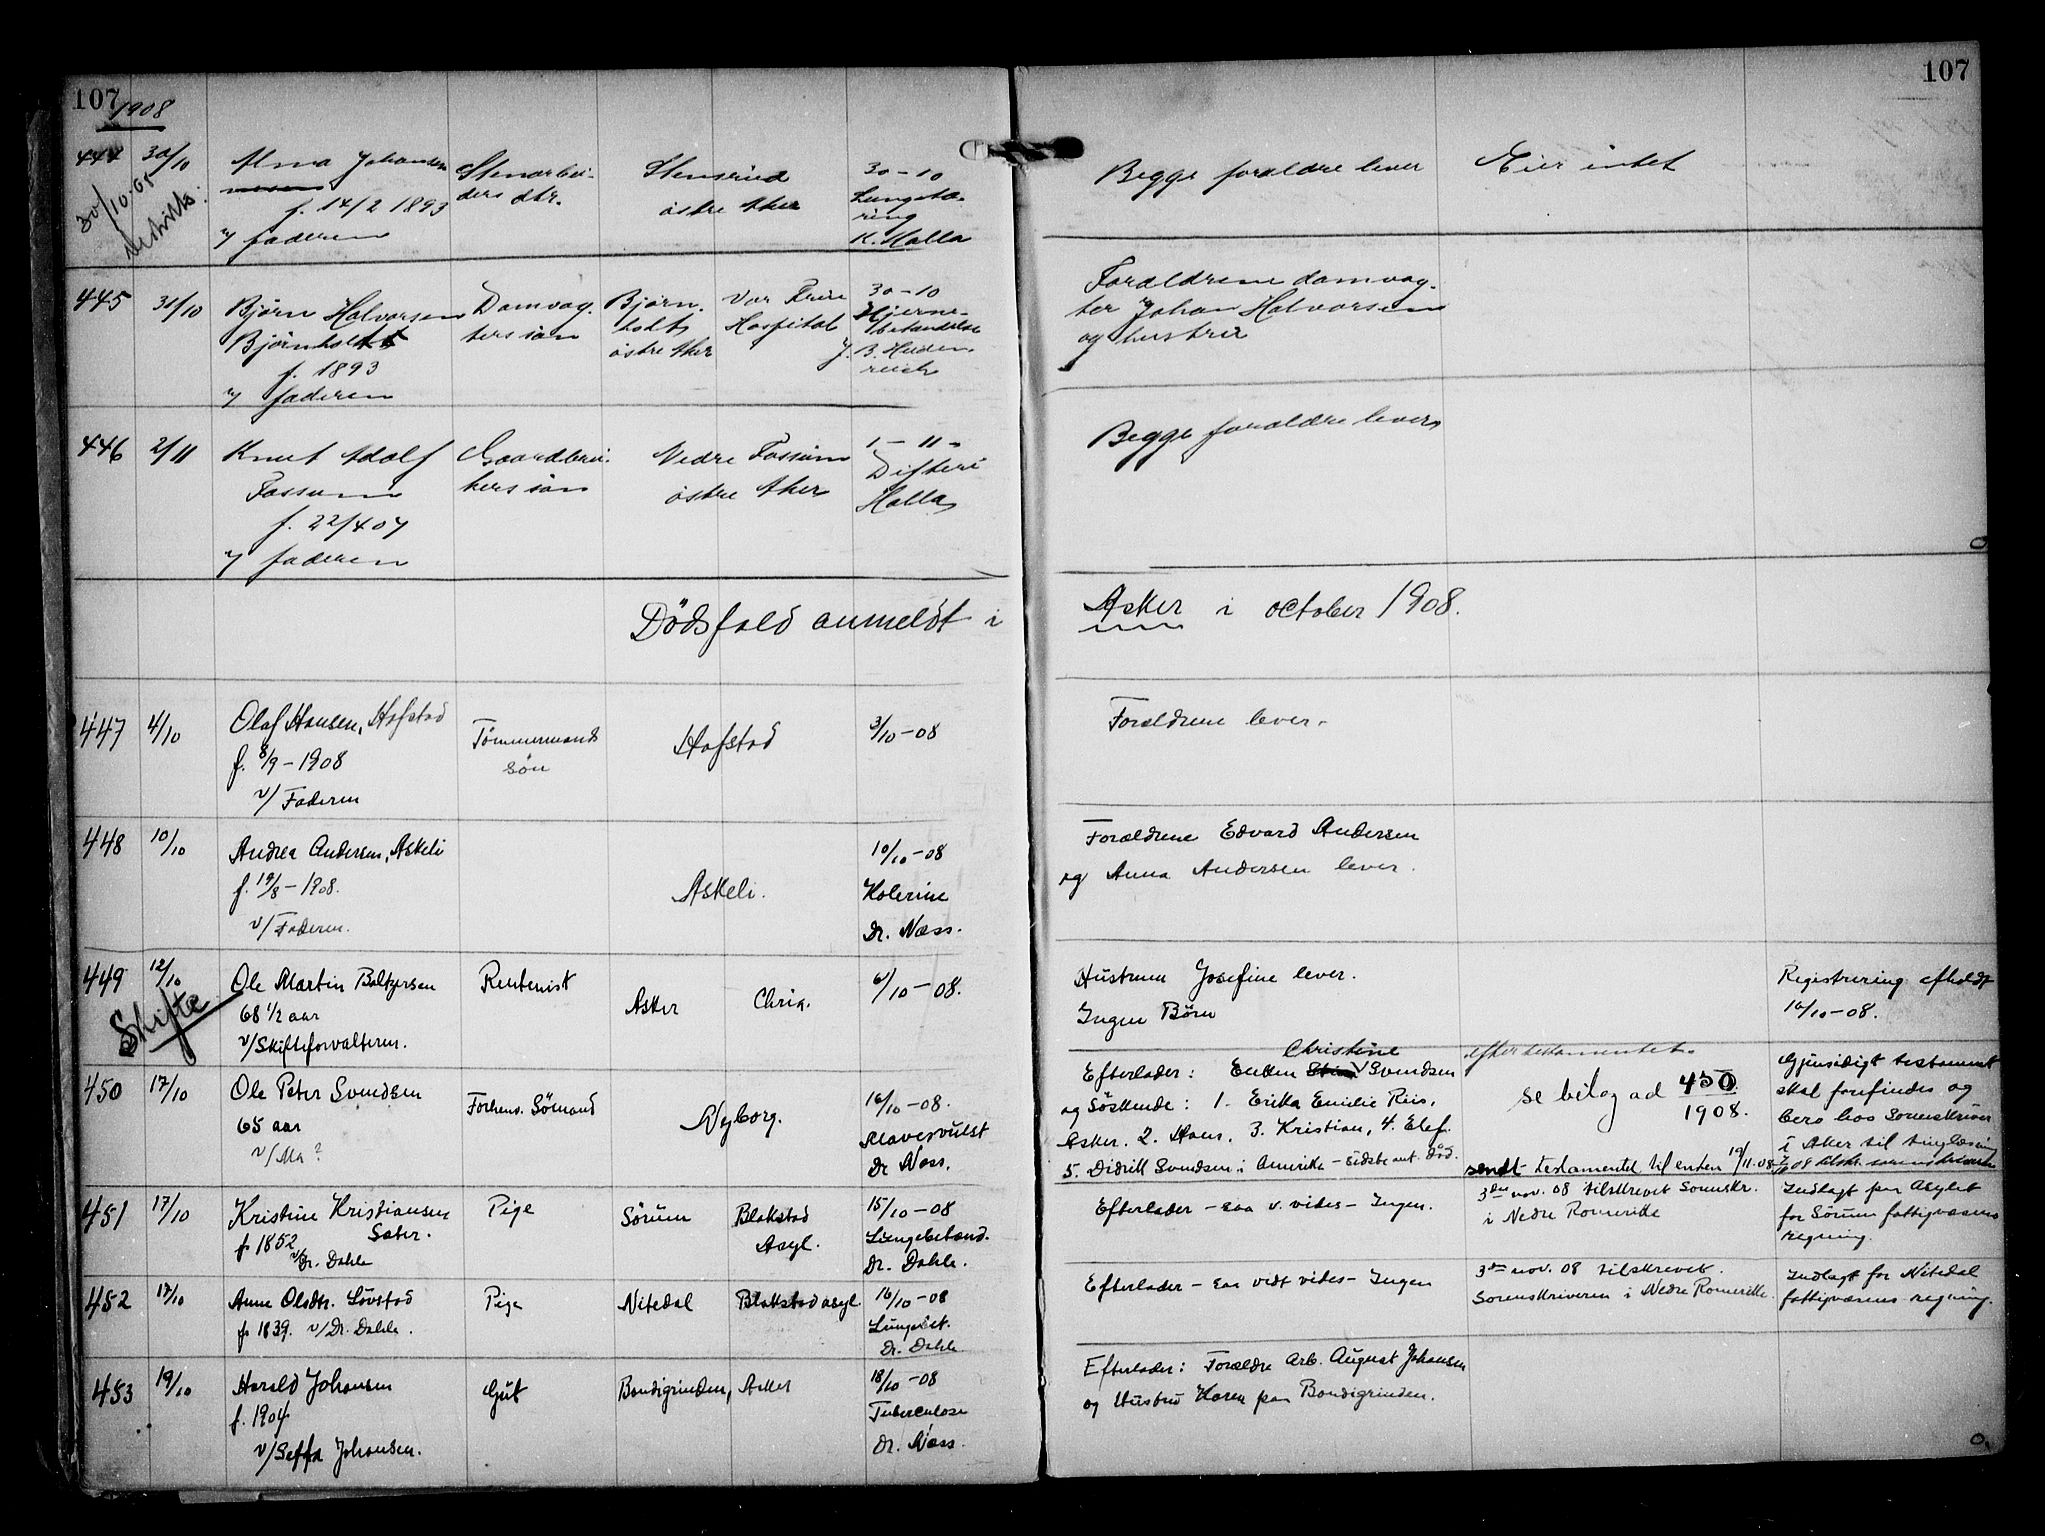 107
107
1908
444 30/10 Alma Johansen
f. 14/2 1893
v/ faderen
30/10.08
Stenarbei-
ders dtr.
Stensrud
østre Aker
30-10
Lungetæ-
ring
K. Halla
Begge forældre lever
Eier intet
445 31/10 Bjørn Halvorsen
Bjørnholt
f. 1893
v/ faderen
Damvog-
ters søn
Bjørn-
holt
østre Aker
Vor Frue
Hospital
30-10
Hjerne-
betændelse
Forældrene damvog-
ter Johan Halvorsen
og hustru
446 2/11 Knut Adolf
Fossum
f. 22/4 07
v/ faderen
Gaardbru-
kers søn
Nedre Fossum
østre Aker
1-11-
Difteri
Halla
Begge forældre lever
Dödsfald anmeldt i Asker i october 1908.
447 4/10 Olaf Hansen, Hofstad
f. 8/9-1908
v/ Faderen
Tömmermands
Sön
Hofstad
3/10-08
Forældrene lever.
448 10/10 Andrea Andersen, Askeli
f. 19/8-1908.
v/ Faderen.
Askeli.
10/10-08
Kolerine
Dr. Næss.
Forældrene Edvard Andersen
og Anna Andersen lever.
449 12/10 Ole Martin Baltzersen
68 1/2 aar
v/Skifteforvalteren.
Skifte
Rentenist
Asker
Chria.
6/10-08.
Hustruen Josefine lever.
Ingen Börn
Registrering afholdt
16/10-08.
450 17/10 Ole Peter Svendsen
65 aar
v/
Forhenv. Sömand
Nyborg.
16/10-08.
Mavesvulst
Dr. Næss.
Christine
Efterlader: Enken Svendsen
og Söskende: 1. Erika Emilie Riis,
Asker. 2. Hans, 3. Kristian, 4. Elef.
5. Didrik Svendsen i Amerika - sidste ant. död.
efter testamentet.
se bilag ad 450
1908.
sendt testamentet til enken 19/11-08.
Gjensidigt testament
skal forefindes og
bero hos Sorenskriver
i Aker til tinglæsning
451 17/10 Kristine Kristiansen
Sæter.
f. 1852
v/Dr. Dahle
Pige
Sörum
Blakstad
Asyl.
15/10-08
Lungebetænd.
Dr. Dahle.
Efterlader - saa v. vides - Ingen.
3die nov. 08 tilskrevet Sorenskr.
i Nedre Romerike
Indlagt paa Asylet
for Sörum fattigvæsens
regning.
452 17/10 Anne Olsdtr. Lövstad
f. 1839. v/Dr. Dahle.
Pige
Nitedal
Blakstad asyl.
16/10-08
Dr. Dahle
Efterlader - saa vidt vides - Ingen
3die nov. 08 tilskrevet
Sorenskriveren i Nedre Romerike.
Indlagt for Nitedal
fattigvæsens regning.
453 19/10 Harald Johansen
f. 1904
v/Seffa Johansen.
Gut
Bondigrinden, Asker
18/10-08
Tuberculose
Dr. Næss.
Efterlader: Forældre Arb. August Johansen
og Hustru Karen paa Bondigrinden.